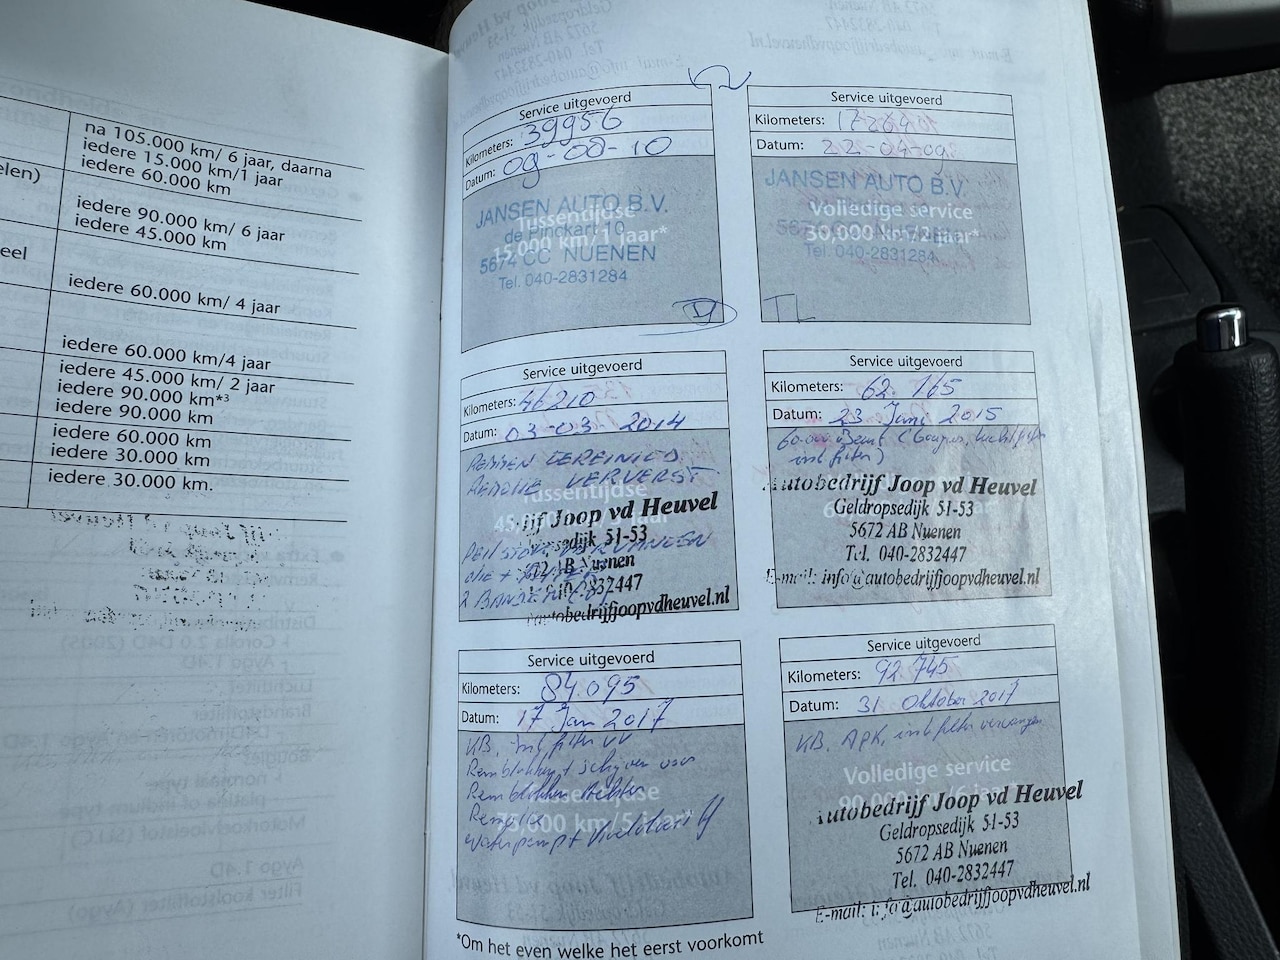 na 105.000 km/ 6 jaar, daarna
iedere 15.000 km/1 jaar
iedere 60.000 km
elen)
iedere 90.000 km/ 6 jaar
iedere 45.000 km
eel
iedere 60.000 km/ 4 jaar
iedere 60.000 km/4 jaar
iedere 45.000 km/ 2 jaar
iedere 90.000 km*³
iedere 90.000 km
iedere 60.000 km
iedere 30.000 km
iedere 30.000 km.
Service uitgevoerd
Kilometers: 39956
Datum: 09-08-10
JANSEN AUTO B.V.
Tussentijdse
de Pinckart 10
15,000 km/1 jaar*
5674 CC NUENEN
Tel. 040-2831284
Service uitgevoerd
Kilometers:
Datum: 22-04-09
JANSEN AUTO B.V.
Volledige service
30,000 km/2 jaar*
Tel. 040-2831284
Service uitgevoerd
Kilometers: 46210
Datum: 03-03-2014
REMMEN GEREINIGD
REMOLIE VERVERST
Tussentijdse
ijf Joop vd Heuvel
sedijk 51-53
VERVANGEN
AB Nuenen
OLIE +
2832447
2 BANDEN
autobedrijfjoopvdheuvel.nl
Service uitgevoerd
Kilometers: 62.165
Datum: 23 Juni 2015
60.000 Beurt (Bougies, luchtfilter
int filter)
Autobedrijf Joop vd Heuvel
Geldropsedijk 51-53
5672 AB Nuenen
Tel. 040-2832447
E-mail: info@autobedrijfjoopvdheuvel.nl
Service uitgevoerd
Kilometers: 84.095
Datum: 17 Jan 2017
KB, int filter VV
Remblokken + schijven voor
Remblokken achter
Tussentijdse
Remolie
75,000 km/5 jaar*
waterpomp +
Service uitgevoerd
Kilometers: 92.745
Datum: 31 Oktober 2017
KB, APK, int filter vervangen
Volledige service
90,000 km/6 jaar*
Autobedrijf Joop vd Heuvel
Geldropsedijk 51-53
5672 AB Nuenen
Tel. 040-2832447
E-mail: info@autobedrijfjoopvdheuvel.nl
*Om het even welke het eerst voorkomt